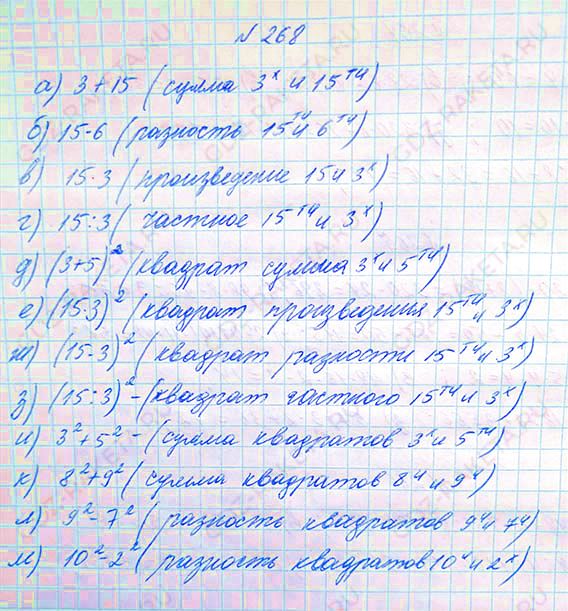 № 268
а) 3 + 15 (сумма 3ˣ и 15ᵀᵘ)
б) 15-6 (разность 15ᵀᵘ и 6ᵀᵘ)
в) 15·3 (произведение 15 и 3ˣ)
г) 15:3 (частное 15ᵀᵘ и 3ˣ)
д) (3+5)² (квадрат сумма 3ˣ и 5ᵀᵘ)
е) (15·3)² (квадрат произведения 15ᵀᵘ и 3ˣ)
ж) (15-3)² (квадрат разности 15ᵀᵘ и 3ˣ)
з) (15:3)² - (квадрат частного 15ᵀᵘ и 3ˣ)
и) 3² + 5² - (сумма квадратов 3ˣ и 5ᵀᵘ)
к) 8² + 9² (сумма квадратов 8ᵘ и 9ᵘ)
л) 9² - 7² (разность квадратов 9ᵘ и 7ᵘ)
м) 10² - 2² (разность квадратов 10ᵘ и 2ˣ)
GDZ-RAKETA.RU